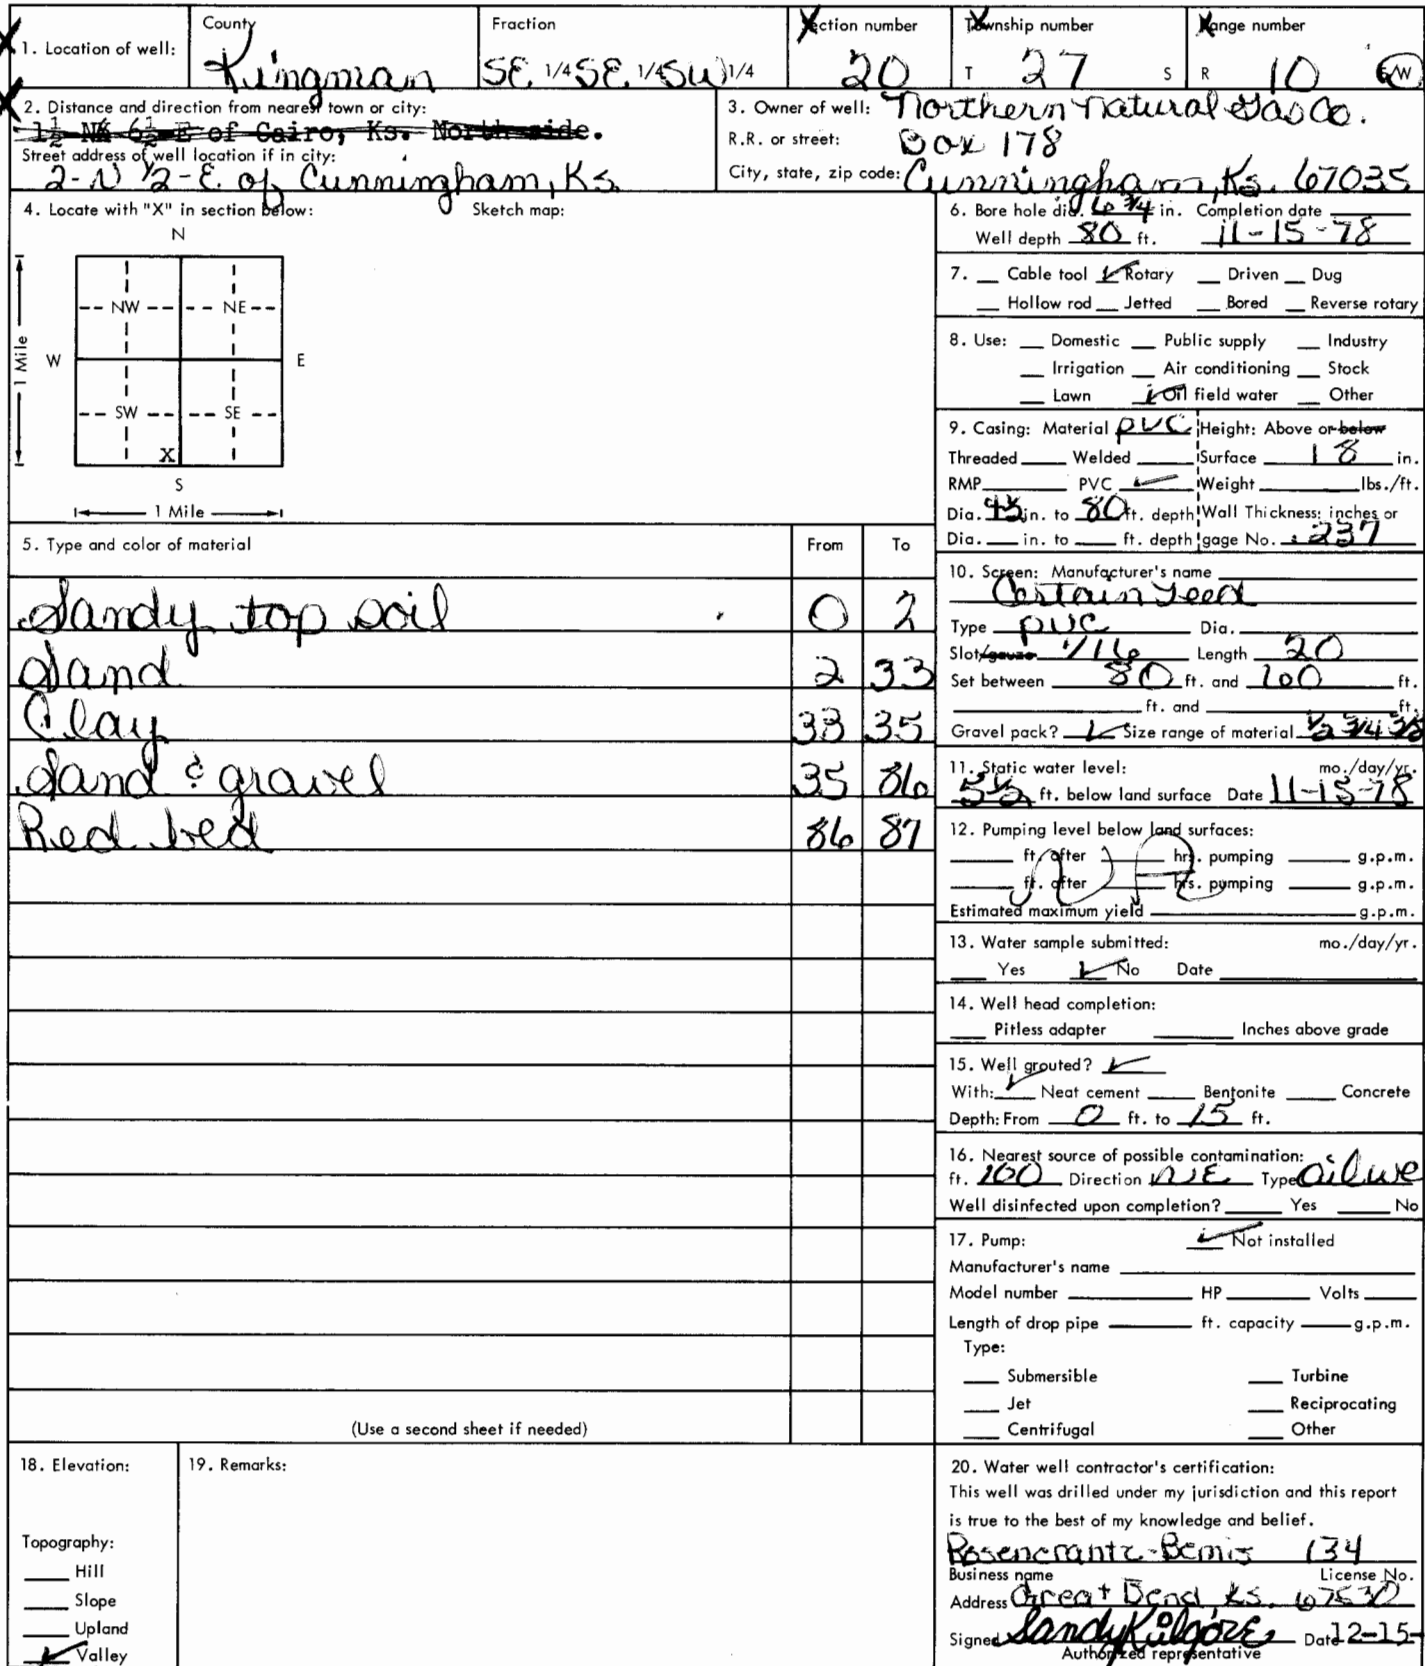 County Fraction Section number Township number Range number
1. Location of well: Kingman SE 1/4 SE 1/4 SW 1/4 20 T 27 S R 10 E/W
2. Distance and direction from nearest town or city:
of Cairo, Ks. North side.
Street address of well location if in city:
2-N 1/2-E of Cunningham, Ks
3. Owner of well: Northern Natural Gas Co.
R.R. or street: Box 178
City, state, zip code: Cunningham, Ks. 67035
4. Locate with "X" in section below: Sketch map:
N
NW NE
1 Mile W E
SW SE
X
S
1 Mile
5. Type and color of material From To
Sandy top soil 0 2
Sand 2 33
Clay 33 35
Sand & gravel 35 86
Red bed 86 87
(Use a second sheet if needed)
6. Bore hole dia. 6 3/4 in. Completion date
Well depth 80 ft. 11-15-78
7. Cable tool ✓ Rotary Driven Dug
Hollow rod Jetted Bored Reverse rotary
8. Use: Domestic Public supply Industry
Irrigation Air conditioning Stock
Lawn ✓ Oil field water Other
9. Casing: Material PVC Height: Above or below
Threaded Welded Surface 18 in.
RMP PVC ✓ Weight lbs./ft.
Dia. in. to 80 ft. depth Wall Thickness: inches or
Dia. in. to ft. depth gage No. .237
10. Screen: Manufacturer's name
Certain Teed
Type PVC Dia.
Slot/gauze 1/16 Length 20
Set between 80 ft. and 100 ft.
ft. and ft.
Gravel pack? ✓ Size range of material 1/2 3/4 3/8
11. Static water level: mo./day/yr.
ft. below land surface Date 11-15-78
12. Pumping level below land surfaces:
ft. after hrs. pumping g.p.m.
ft. after hrs. pumping g.p.m.
Estimated maximum yield g.p.m.
13. Water sample submitted: mo./day/yr.
Yes ✓ No Date
14. Well head completion:
Pitless adapter Inches above grade
15. Well grouted? ✓
With: ✓ Neat cement Bentonite Concrete
Depth: From 0 ft. to 15 ft.
16. Nearest source of possible contamination:
ft. 100 Direction NE Type oil we
Well disinfected upon completion? Yes No
17. Pump: ✓ Not installed
Manufacturer's name
Model number HP Volts
Length of drop pipe ft. capacity g.p.m.
Type:
Submersible Turbine
Jet Reciprocating
Centrifugal Other
18. Elevation:
Topography:
Hill
Slope
Upland
✓ Valley
19. Remarks:
20. Water well contractor's certification:
This well was drilled under my jurisdiction and this report
is true to the best of my knowledge and belief.
Rosencrantz-Bemis 134
Business name License No.
Address Great Bend Ks. 67530
Signed Sandy Kilgore Date 12-15-
Authorized representative